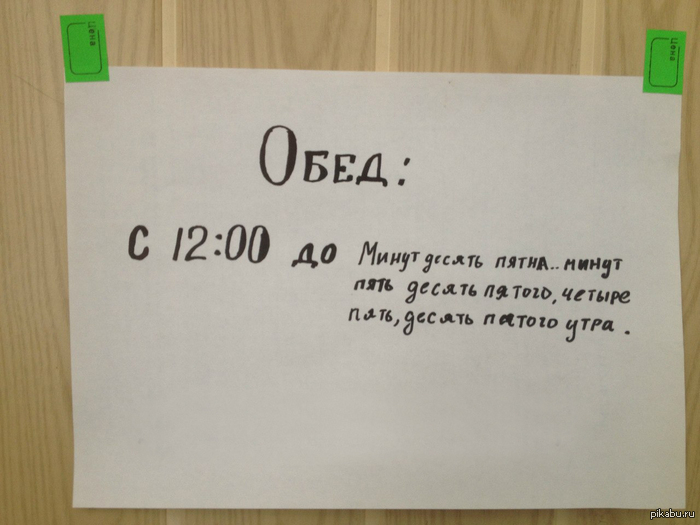 Цена
Цена
Обед:
с 12:00 до Минут десять пятна.. минут
пять десять пятого, четыре
пять, десять пятого утра.
pikabu.ru